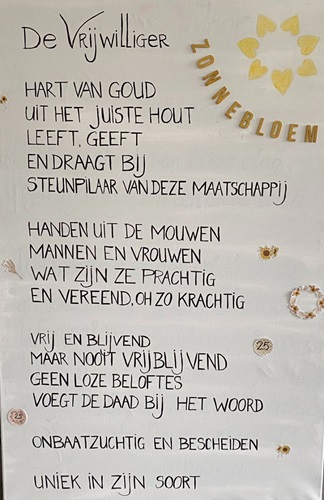 De Vrijwilliger
ZONNEBLOEM
HART VAN GOUD
UIT HET JUISTE HOUT
LEEFT, GEEFT
EN DRAAGT BIJ
STEUNPILAAR VAN DEZE MAATSCHAPPIJ
HANDEN UIT DE MOUWEN
MANNEN EN VROUWEN
WAT ZIJN ZE PRACHTIG
EN VEREEND, OH ZO KRACHTIG
VRIJ EN BLIJVEND
MAAR NOOIT VRIJBLIJVEND
GEEN LOZE BELOFTES
VOEGT DE DAAD BIJ HET WOORD
ONBAATZUCHTIG EN BESCHEIDEN
UNIEK IN ZIJN SOORT
25